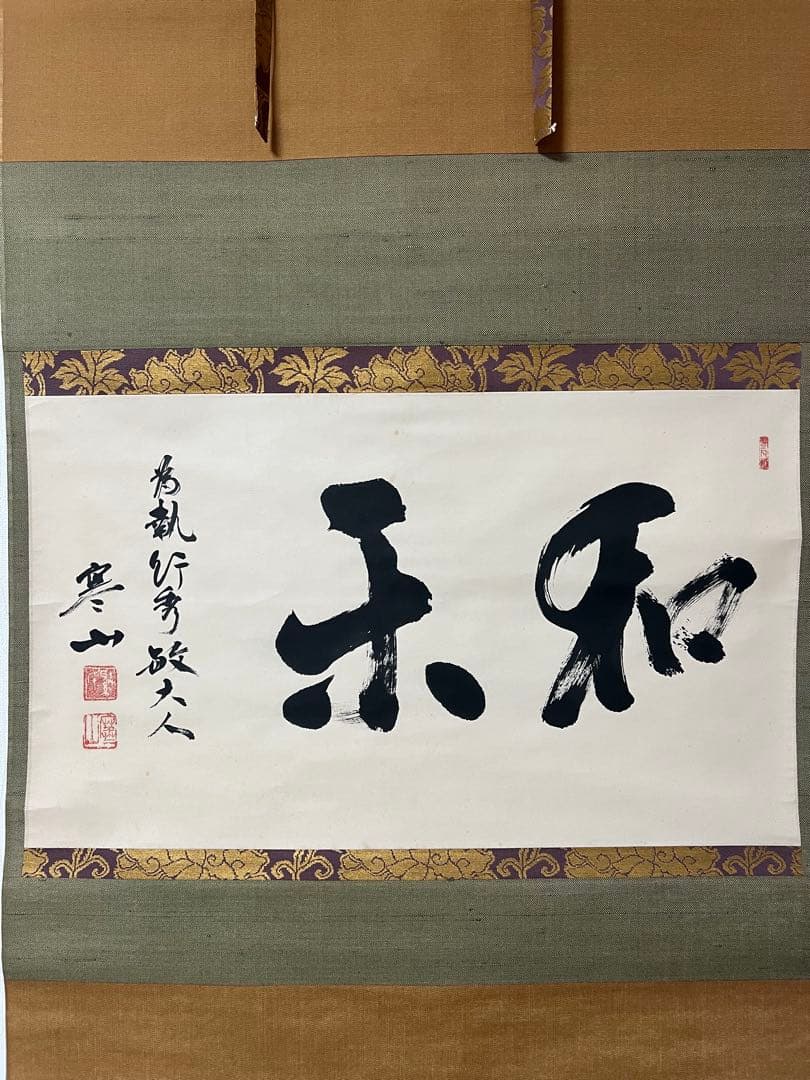 和樂
為執行秀敏大人
寒山